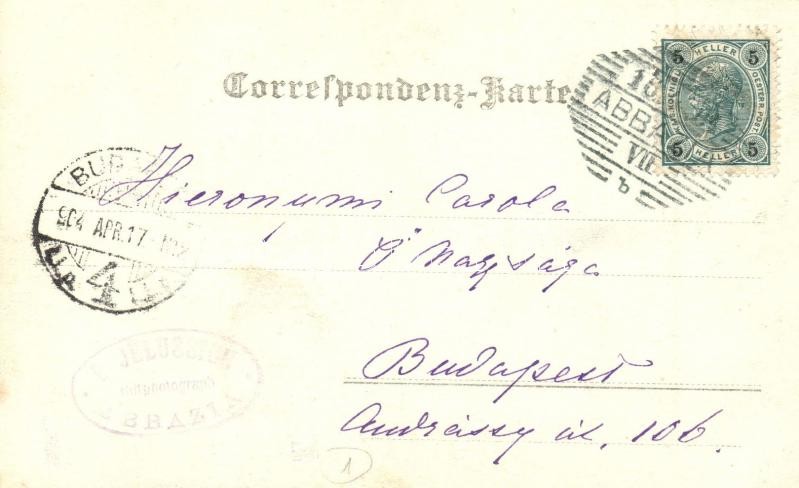 Correspondenz-Karte
5 HELLER 5
OESTERR. POST.
5 HELLER 5
15
ABBA
VII
b
BUD
904 APR.17
4
Hieronymi Carola
Ő Nagysága
Budapest
Andrássy út. 106.
JELUSSICH
Hofphotograph
ABBAZIA
1